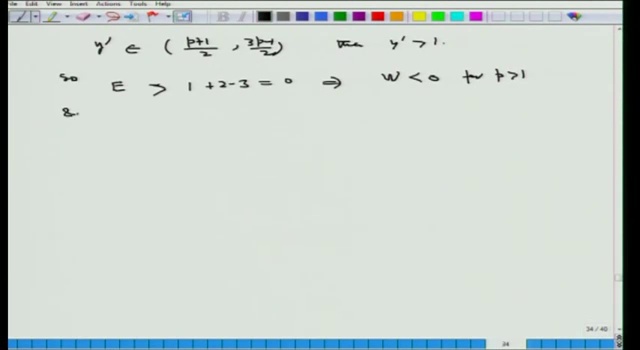 Edit View Insert Actions Tools Help
y' ∈ ( p+1/2 , 3p-1/2 ) then y' > 1.
so E > 1 + 2 - 3 = 0 ⇒ W < 0 for p > 1
&.
34 / 40
34